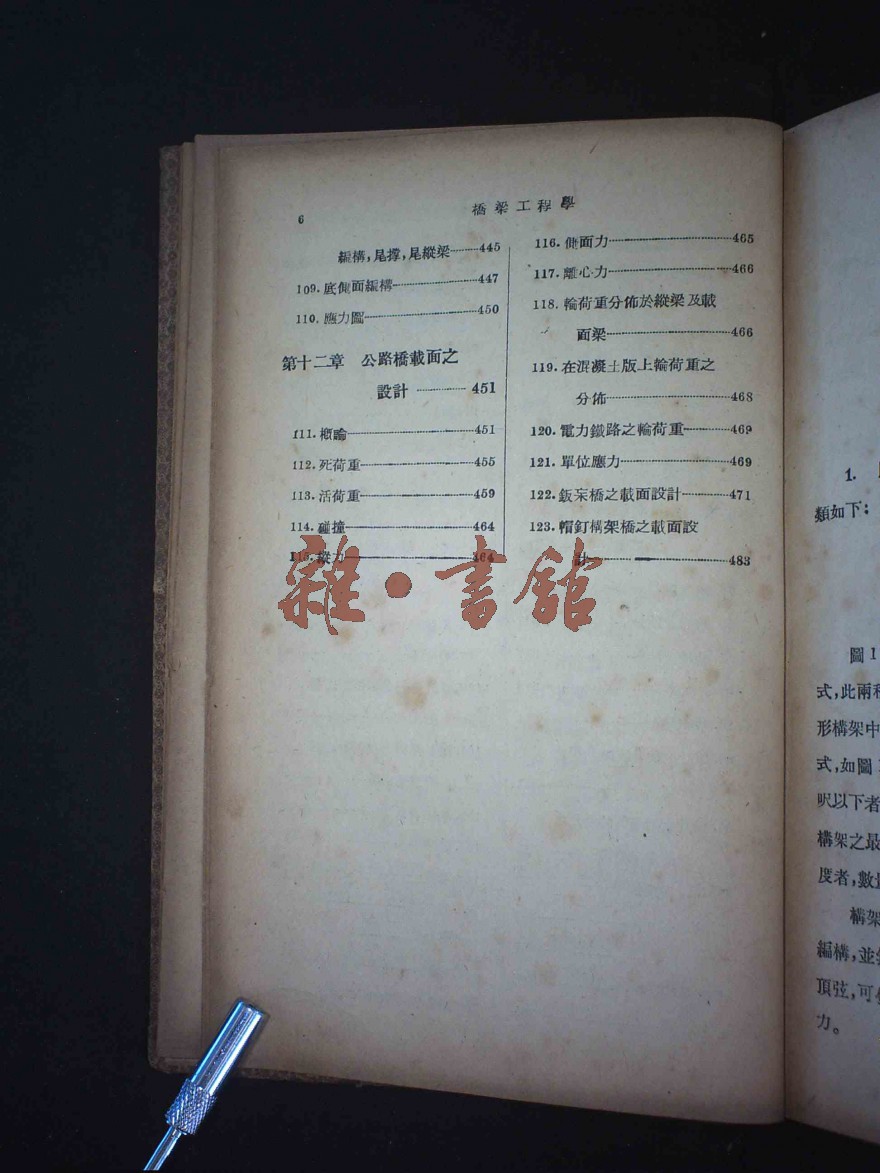 6
橋梁工程學
編構,尾撑,尾縱梁………445
109.底側面編構………447
110.應力圖………450
第十二章 公路橋載面之
設計………451
111.概論………451
112.死荷重………455
113.活荷重………459
114.碰撞………464
115.縱力………464
116.側面力………465
117.離心力………466
118.輪荷重分佈於縱梁及載
面梁………466
119.在混凝土版上輪荷重之
分佈………468
120.電力鐵路之輪荷重………469
121.單位應力………469
122.鈑梁橋之載面設計………471
123.帽釘構架橋之載面設
計………483
雜·書館
1.
類如下:
圖1
式,此兩
形構架中
式,如圖
呎以下者
構架之最
度者,數
構架
編構,並
頂弦,可
力。